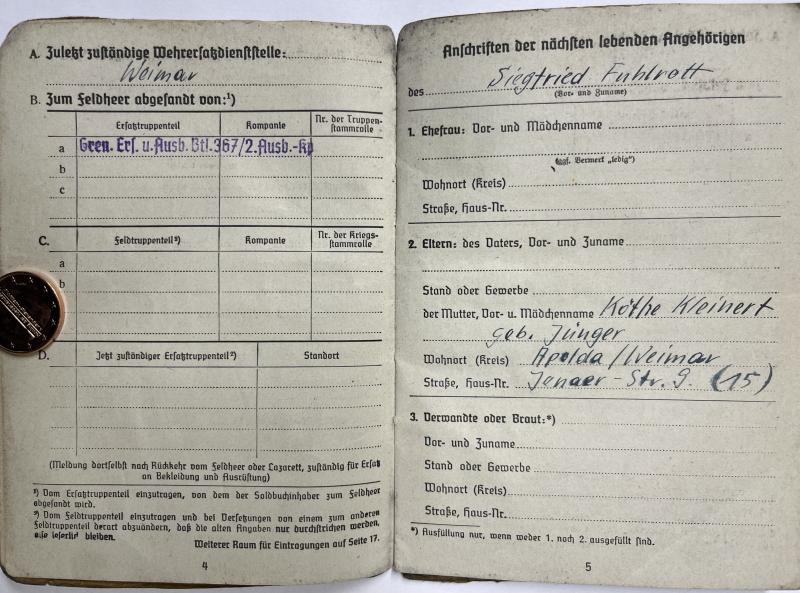 A. Zuletzt zuständige Wehrersatzdienststelle:
Weimar
B. Zum Feldheer abgesandt von:¹)
Ersatztruppenteil Kompanie Nr. der Truppen-
stammrolle
a Gren. Ers. u. Ausb. Btl. 367/2. Ausb.-Kp
b
c
C. Feldtruppenteil²) Kompanie Nr. der Kriegs-
stammrolle
a
b
D. Jetzt zuständiger Ersatztruppenteil²) Standort
(Meldung dortselbst nach Rückkehr vom Feldheer oder Lazarett, zuständig für Ersatz
an Bekleidung und Ausrüstung)
¹) Vom Ersatztruppenteil einzutragen, von dem der Soldbuchinhaber zum Feldheer
abgesandt wird.
²) Vom Feldtruppenteil einzutragen und bei Versetzungen von einem zum anderen
Feldtruppenteil derart abzuändern, daß die alten Angaben nur durchstrichen werden,
also leserlich bleiben.
Weiterer Raum für Eintragungen auf Seite 17.
4
Anschriften der nächsten lebenden Angehörigen
des Siegfried Fuhlrott
(Vor- und Zuname)
1. Ehefrau: Vor- und Mädchenname
(ggf. Vermerk „ledig")
Wohnort (Kreis)
Straße, Haus-Nr.
2. Eltern: des Vaters, Vor- und Zuname
Stand oder Gewerbe
der Mutter, Vor- u. Mädchenname Käthe Kleinert
geb. Jünger
Wohnort (Kreis) Apolda/Weimar
Straße, Haus-Nr. Jenaer-Str. 9. (15)
3. Verwandte oder Braut:*)
Vor- und Zuname
Stand oder Gewerbe
Wohnort (Kreis)
Straße, Haus-Nr.
*) Ausfüllung nur, wenn weder 1. noch 2. ausgefüllt sind.
5